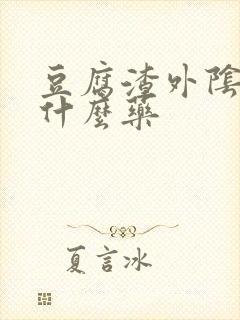 豆腐渣外陰
什麼藥
夏言冰